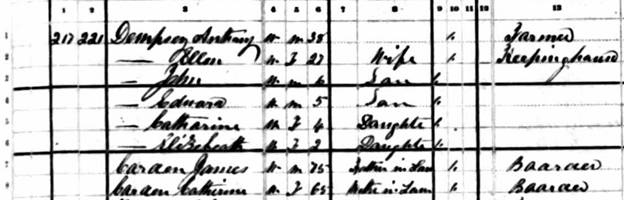 1 2 3 4 5 6 7 8 9 10 11 12 13
1 217 221 Dempsey Anthony W m 38 Farmer
2 — Ellen W F 27 Wife Keepinghouse
3 — John W m 6 Son
4 — Edward W m 5 Son
5 — Catharine W F 4 Daughte
6 — Elizebeath W F 2 Daughte
7 Carden James W m 75 Father in Law Boarder
8 Carden Catherine W F 65 Mothe in Law Boarder